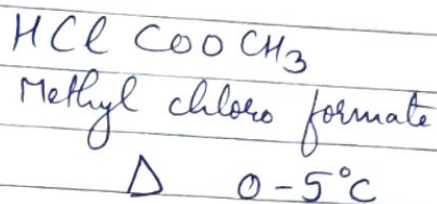 HCl COOCH3
Methyl chloro formate
Δ 0-5°C